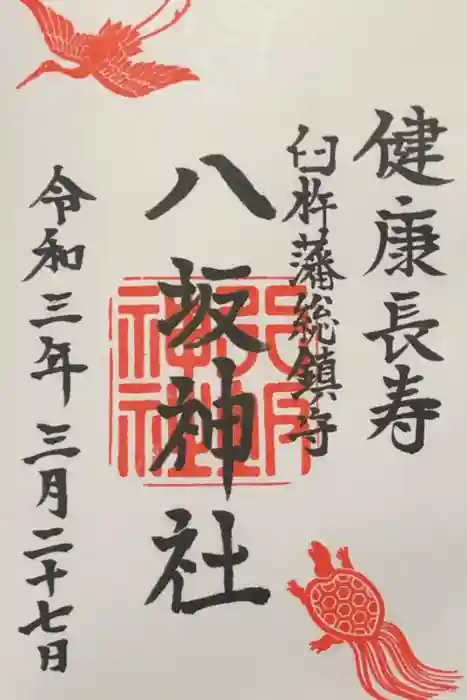 健康長寿
臼杵藩総鎮守
八坂神社
令和三年三月二十七日